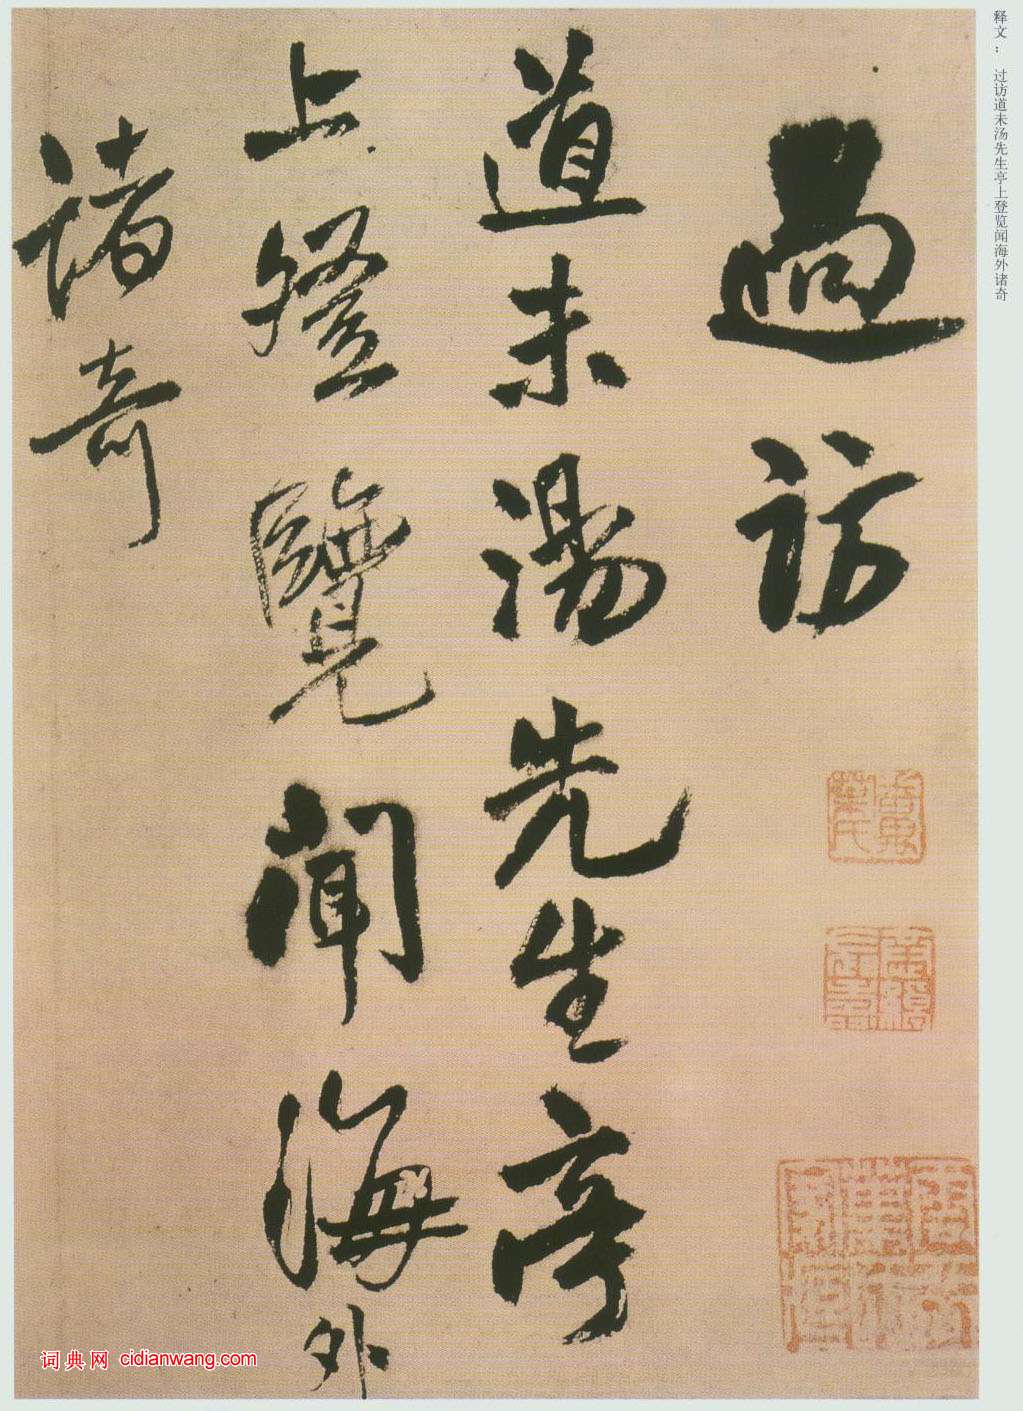 释文： 过访道未汤先生亭上登览闻海外诸奇
過訪
道未湯先生亭
上登覽聞海外
諸奇
词典网 cidianwang.com